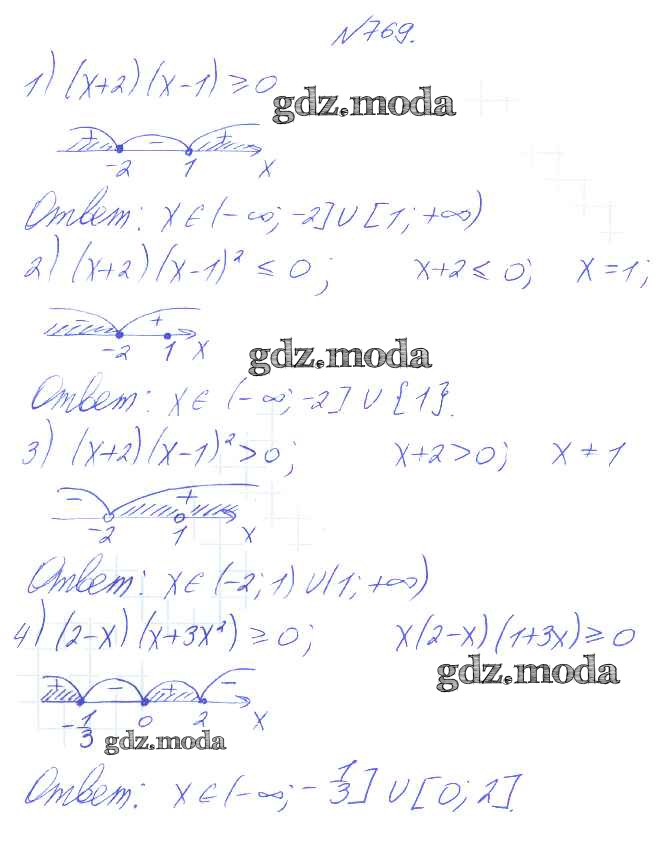 №769.
1) (x+2)(x-1) ≥ 0
gdz.moda
+ - +
-2 1 x
Ответ: x ∈ (-∞; -2] ∪ [1; +∞)
2) (x+2)(x-1)² ≤ 0; x+2 ≤ 0; x=1;
- +
-2 1 x
gdz.moda
Ответ: x ∈ (-∞; -2] ∪ {1}.
3) (x+2)(x-1)² > 0; x+2>0; x ≠ 1
- +
-2 1 x
Ответ: x ∈ (-2; 1) ∪ (1; +∞)
4) (2-x)(x+3x²) ≥ 0; x(2-x)(1+3x) ≥ 0
gdz.moda
+ - + -
-1/3 0 2 x
gdz.moda
Ответ: x ∈ (-∞; -1/3] ∪ [0; 2].